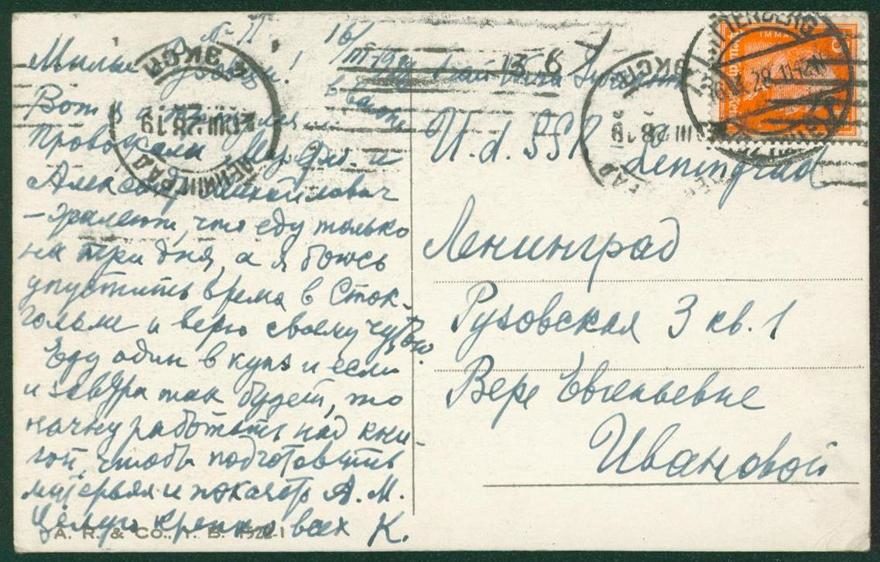 № II
16/III 1928
в вагоне
Милые
Вот и
Провожали и
Александр Михайлович
– жалеют, что еду только
на три дня, а я боюсь
упустить время в Сток-
гольме и верю своему чутью.
Еду один в купэ и если
и завтра так будет, то
начну работать над кни-
гой, чтобы подготовить
матерьял и показать А. М.
Целую крепко всех К.
A. R. & CO. I. B. 1928-1
U.d.SSR Leningrad
Ленинград
Рузовская 3 кв. 1
Вере Евгеньевне
Ивановой
ЛЕНИНГРАД
III 28 19